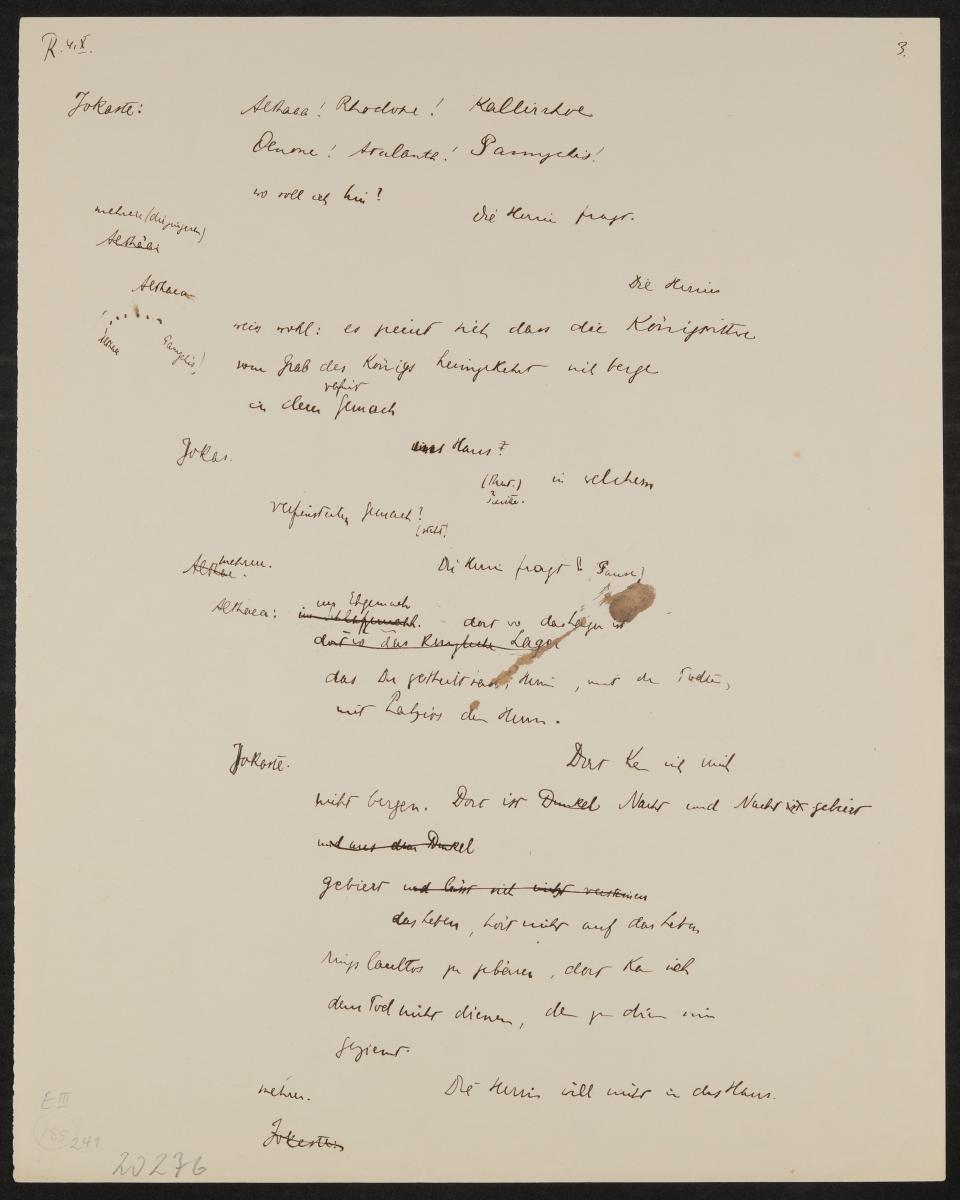 R. 4. X.
3.
Jokaste: Althaea! Rhodope! Kallirrhoe
Oenone! Atalante! Pannychis!
wo soll ich hin?
Die Herrin fragt.
mehrere (die jüngeren)
Althäa
Althaea
Die Herrin
Pannychis!
weiss wohl: es geziert sich dass die Königswittwe
vom Grab des Königs heimgekehrt sich berge
in dem Gemach
Jokas. Haus?
in welchem
verfinsterten Gemach?
mehrere.
Althae.
Die Herrin fragt? (Pause)
ins Ehgemach
Althaea: im Schlafgemach. – dort wo das Lager ist
dort ist das Königliche Lager
das Du getheilt hast, Herrin, mit dem Todten,
mit Laïos dem Herrn.
Jokaste. Dort kann ich mich
nicht bergen. Dort ist Dunkel Nacht und Nacht gebiert
und aus dem Dunkel
gebiert und lässt sich nicht versteinen
das Leben, hört nicht auf das Leben
rings lautlos zu gebären, dort kann ich
dem Tod nicht dienen, dem zu dienen mir
geziemt.
mehrere. Die Herrin will nicht in das Haus.
Jokaste:
E III
165
241
20276